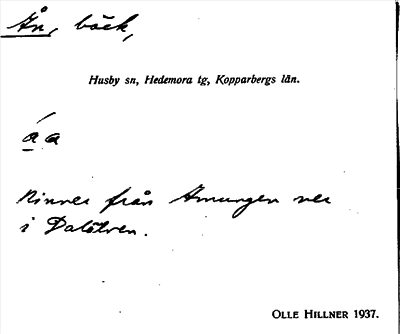 Ån, bäck,
Husby sn, Hedemora tg, Kopparbergs län.
Rinner från Amungen ner
i Dalälven.
OLLE HILLNER 1937.